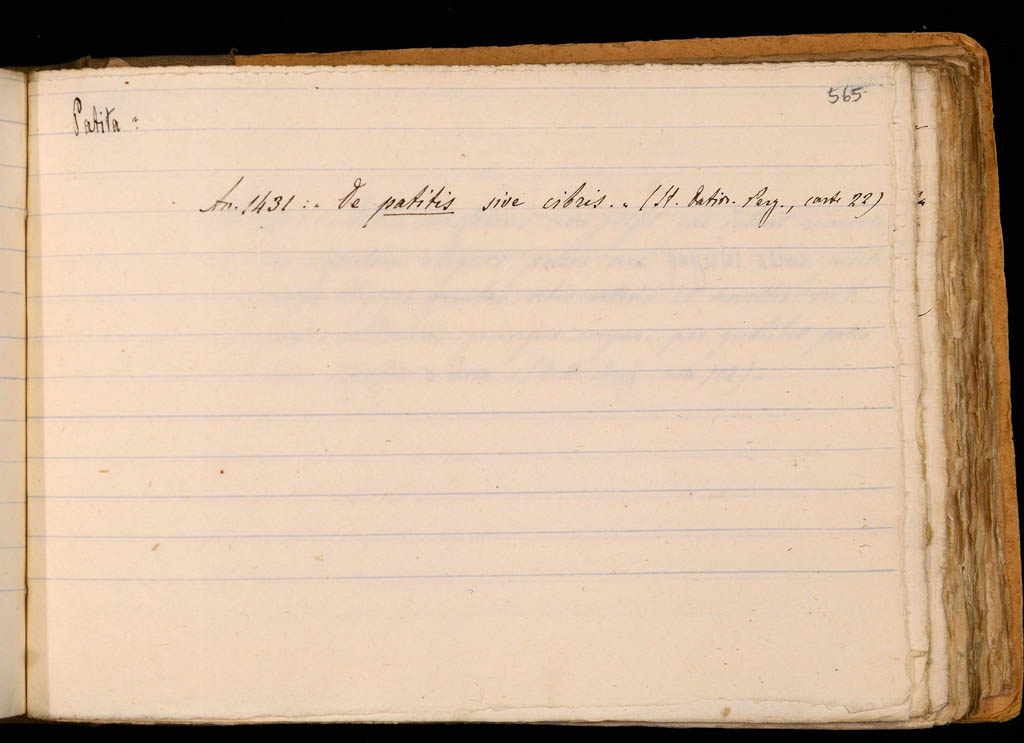 565
Patita:
An. 1431: "De patitis sive cibris." (St. Datior. Berg., carta 22)